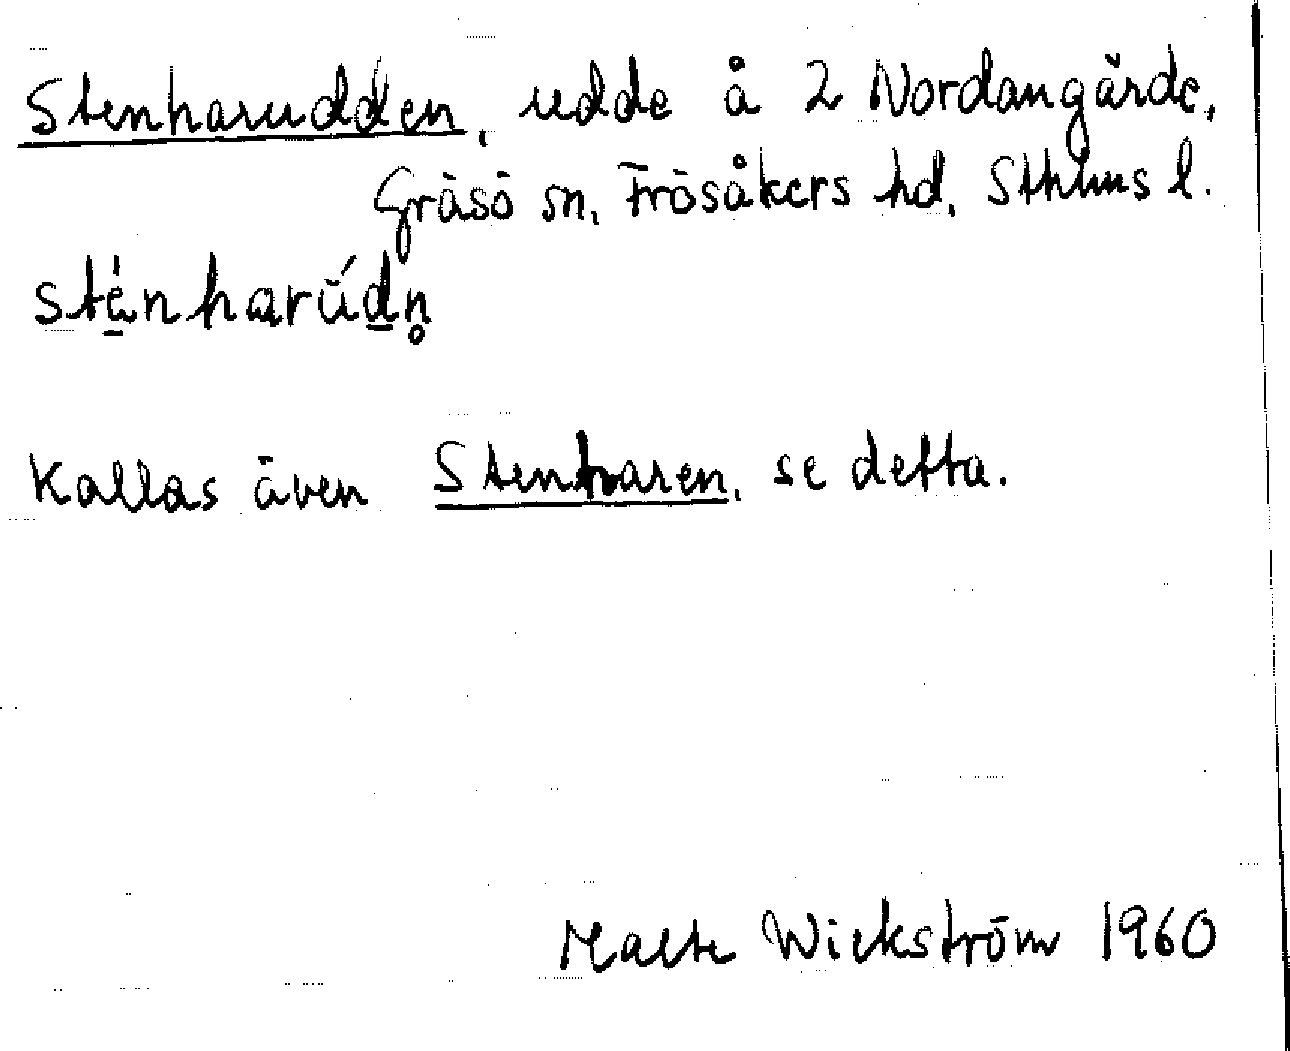 Stenharudden, udde å 2 Nordangärde,
Gräsö sn, Frösåkers hd, Sthlms l.
sténharúdn̥
Kallas även Stenharen, se detta.
Malte Wickström 1960